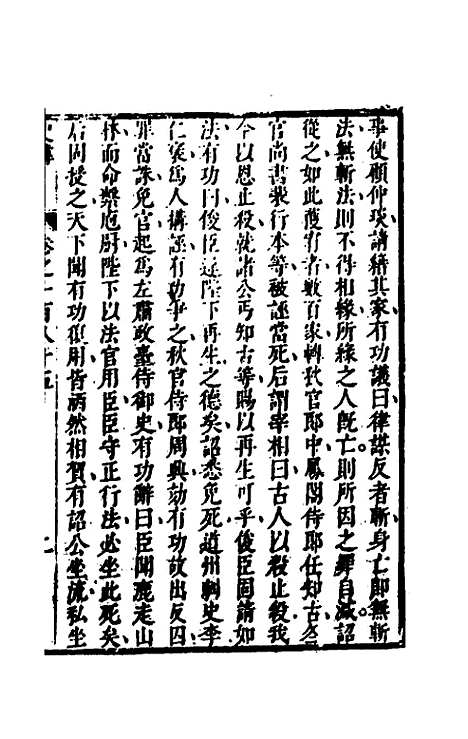 事使顧仲琰請籍其家有功議曰律謀反者斬身亡卽無斬
法無斬法則不得相緣所緣之人旣亡則所因之罪自減詔
從之如此獲宥者數百家轉秋官郎中鳳閣侍郎任知古冬
官尚書裴行本等被誣當死后謂宰相曰古人以殺止殺我
今以恩止殺就諸公丐知古等賜以再生可乎俊臣固請如
法有功曰俊臣違陛下再生之德矣詔悉免死道州刺史李
仁褒爲人搆誣有功爭之秋官侍郎周興劾有功故出反囚
罪當誅免官起爲左肅政臺侍御史有功辭曰臣聞鹿走山
林而命繫庖廚陛下以法官用臣臣守正行法必坐此死矣
后固授之天下聞有功復用皆洒然相賀有詔公坐流私坐
卷之一百八十五